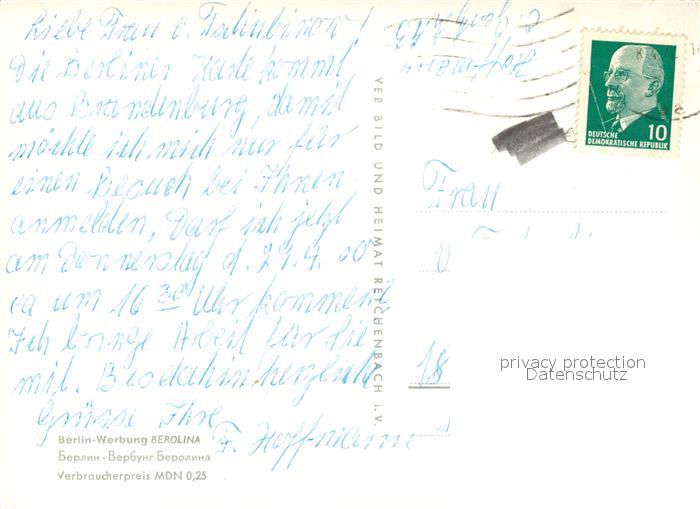 Liebe Frau v. Talubinow!
Die Berliner Karte kommt
aus Brandenburg, damit
möchte ich mich nur für
einen Besuch bei Ihnen
anmelden, Darf ich jetzt
am Donnerstag d. 29.4. so
ca um 16 30 Uhr kommen?
Ich bringe Arbeit für Sie
mit. Bis dahin herzlich
Grüsse Ihre
F. Hoffmann
Berlin-Werbung BEROLINA
Берлин - Вербунг Беролина
Verbraucherpreis MDN 0,25
VEB BILD UND HEIMAT REICHENBACH i. V.
Hoffmann
DEUTSCHE
DEMOKRATISCHE REPUBLIK
10
Frau
18
privacy protection
Datenschutz